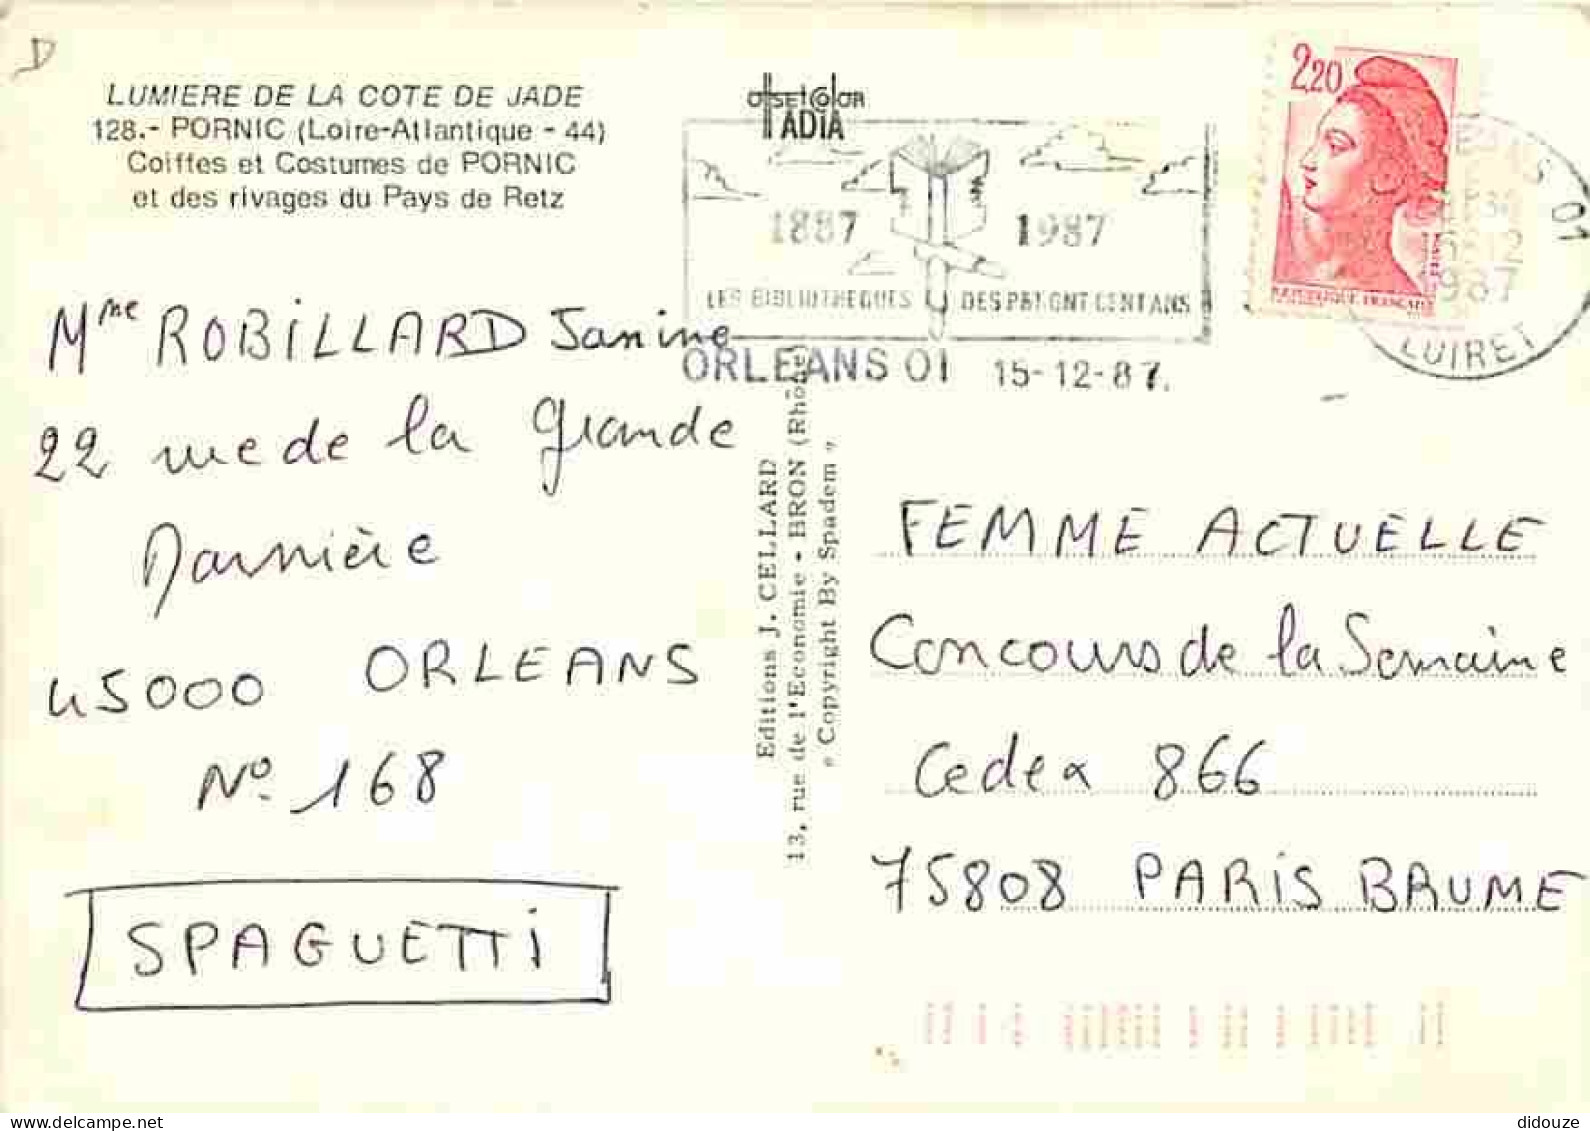 D
LUMIERE DE LA COTE DE JADE
128.- PORNIC (Loire-Atlantique - 44)
Coiffes et Costumes de PORNIC
et des rivages du Pays de Retz
offset Color
IADIA
1887 1987
LES BIBLIOTHEQUES DES PTT ONT CENT ANS
ORLEANS 01 15-12-87.
2,20
REPUBLIQUE FRANÇAISE
01
1987
LOIRET
Mme ROBILLARD Janine
22 rue de la Grande
Marnière
45000 ORLEANS
No. 168
SPAGUETTi
Editions J. CELLARD
13, rue de l'Economie - BRON (Rhône)
« Copyright By Spadem »
FEMME ACTUELLE
Concours de la Semaine
Cedex 866
75808 PARIS BRUME
delcampe.net
didouze